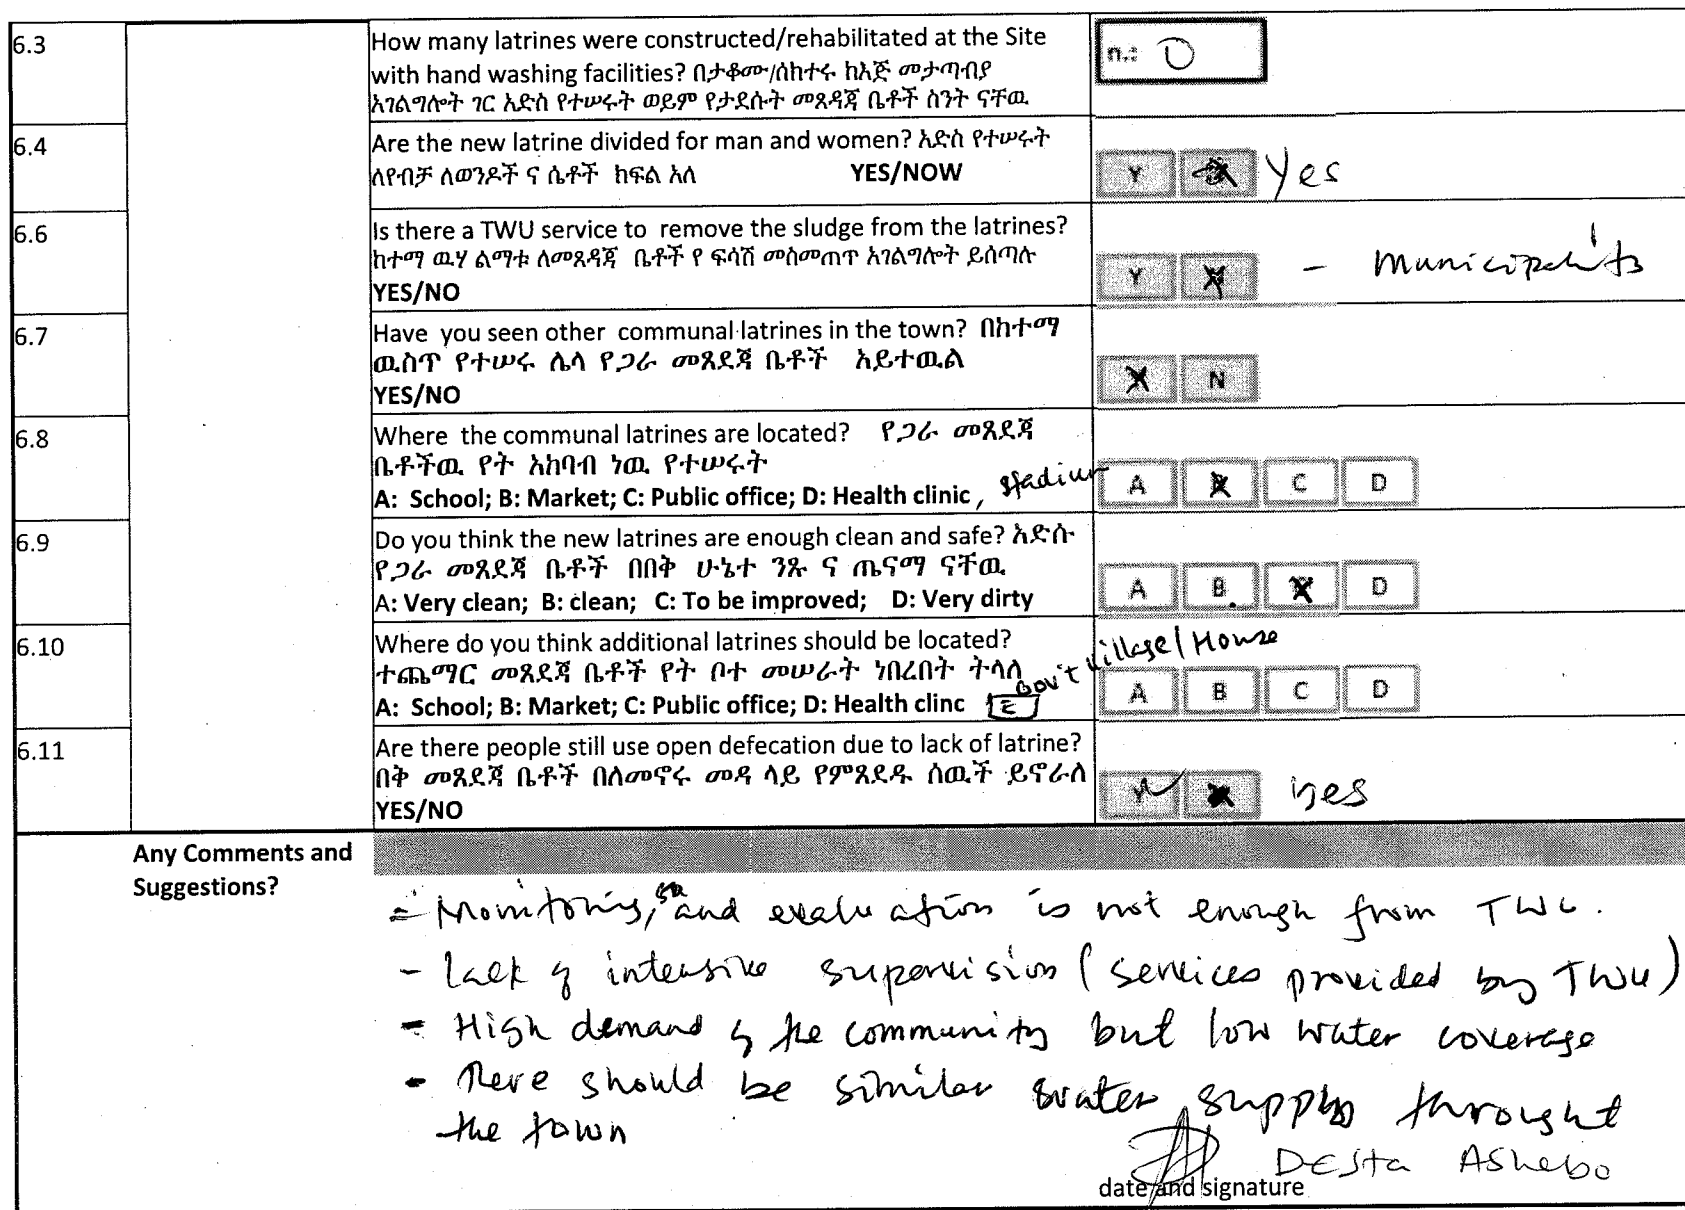 6.3
How many latrines were constructed/rehabilitated at the Site
with hand washing facilities? በታቆሙ/ሰከተሩ ከእጅ መታጣብያ
አገልግሎት ገር አድስ የተሠሩት ወይም የታደሱት መጸዳጃ ቤቶች ስንት ናቸዉ
n.: 0
6.4
Are the new latrine divided for man and women? አድስ የተሠሩት
ለየብቻ ለወንዶች ና ሴቶች ክፍል አለ YES/NOW
Y Yes
6.6
Is there a TWU service to remove the sludge from the latrines?
ከተማ ዉሃ ልማቱ ለመጸዳጃ ቤቶች የ ፍሳሽ መስመጥ አገልግሎት ይሰጣሉ
YES/NO
Y - Municipality
6.7
Have you seen other communal latrines in the town? በከተማ
ዉስጥ የተሠሩ ሌላ የጋራ መጸደጃ ቤቶች አይተዉል
YES/NO
N
6.8
Where the communal latrines are located? የጋራ መጸደጃ
ቤቶችዉ የት አከባብ ነዉ የተሠሩት
A: School; B: Market; C: Public office; D: Health clinic, stadium
A B C D
6.9
Do you think the new latrines are enough clean and safe? አድሱ
የጋራ መጸደጃ ቤቶች በበቅ ሁኔተ ንጹ ና ጤናማ ናቸዉ
A: Very clean; B: clean; C: To be improved; D: Very dirty
A B D
6.10
Where do you think additional latrines should be located?
ተጨማር መጸደጃ ቤቶች የት ቦተ መሠራት ነበረበት ትላለ
A: School; B: Market; C: Public office; D: Health clinc E Gov't village/House
A B C D
6.11
Are there people still use open defecation due to lack of latrine?
በቅ መጸደጃ ቤቶች በለመኖሩ መዳ ላይ የምጸደዱ ሰዉች ይኖራለ
YES/NO
Y yes
Any Comments and
Suggestions?
- Monitoring, and evaluation is not enough from TWU.
- lack of intensive supervision (services provided by TWU)
- High demand of the community but low water coverage
- There should be similar water supply throught
the town
Desta Ashebo
date and signature